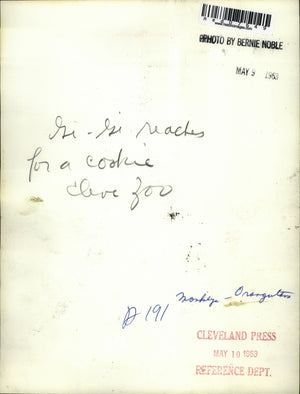 PHOTO BY BERNIE NOBLE
MAY 9 1963
Gi-Gi reaches
for a cookie
Cleve Zoo
Monkeys - Orangutans
191
CLEVELAND PRESS
MAY 10 1963
REFERENCE DEPT.